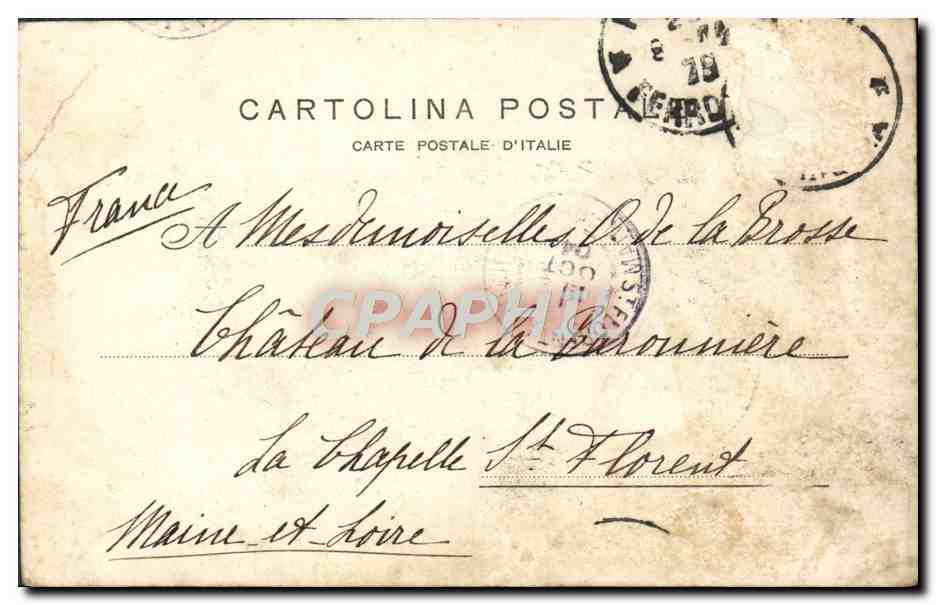 CARTOLINA POSTAL
CARTE POSTALE D'ITALIE
France
A Mesdemoiselles O. de la Brosse
Château de la Baronnière
La Chapelle St Florent
Maine-et-Loire
OCT
04
ST FL
CPAPHIL